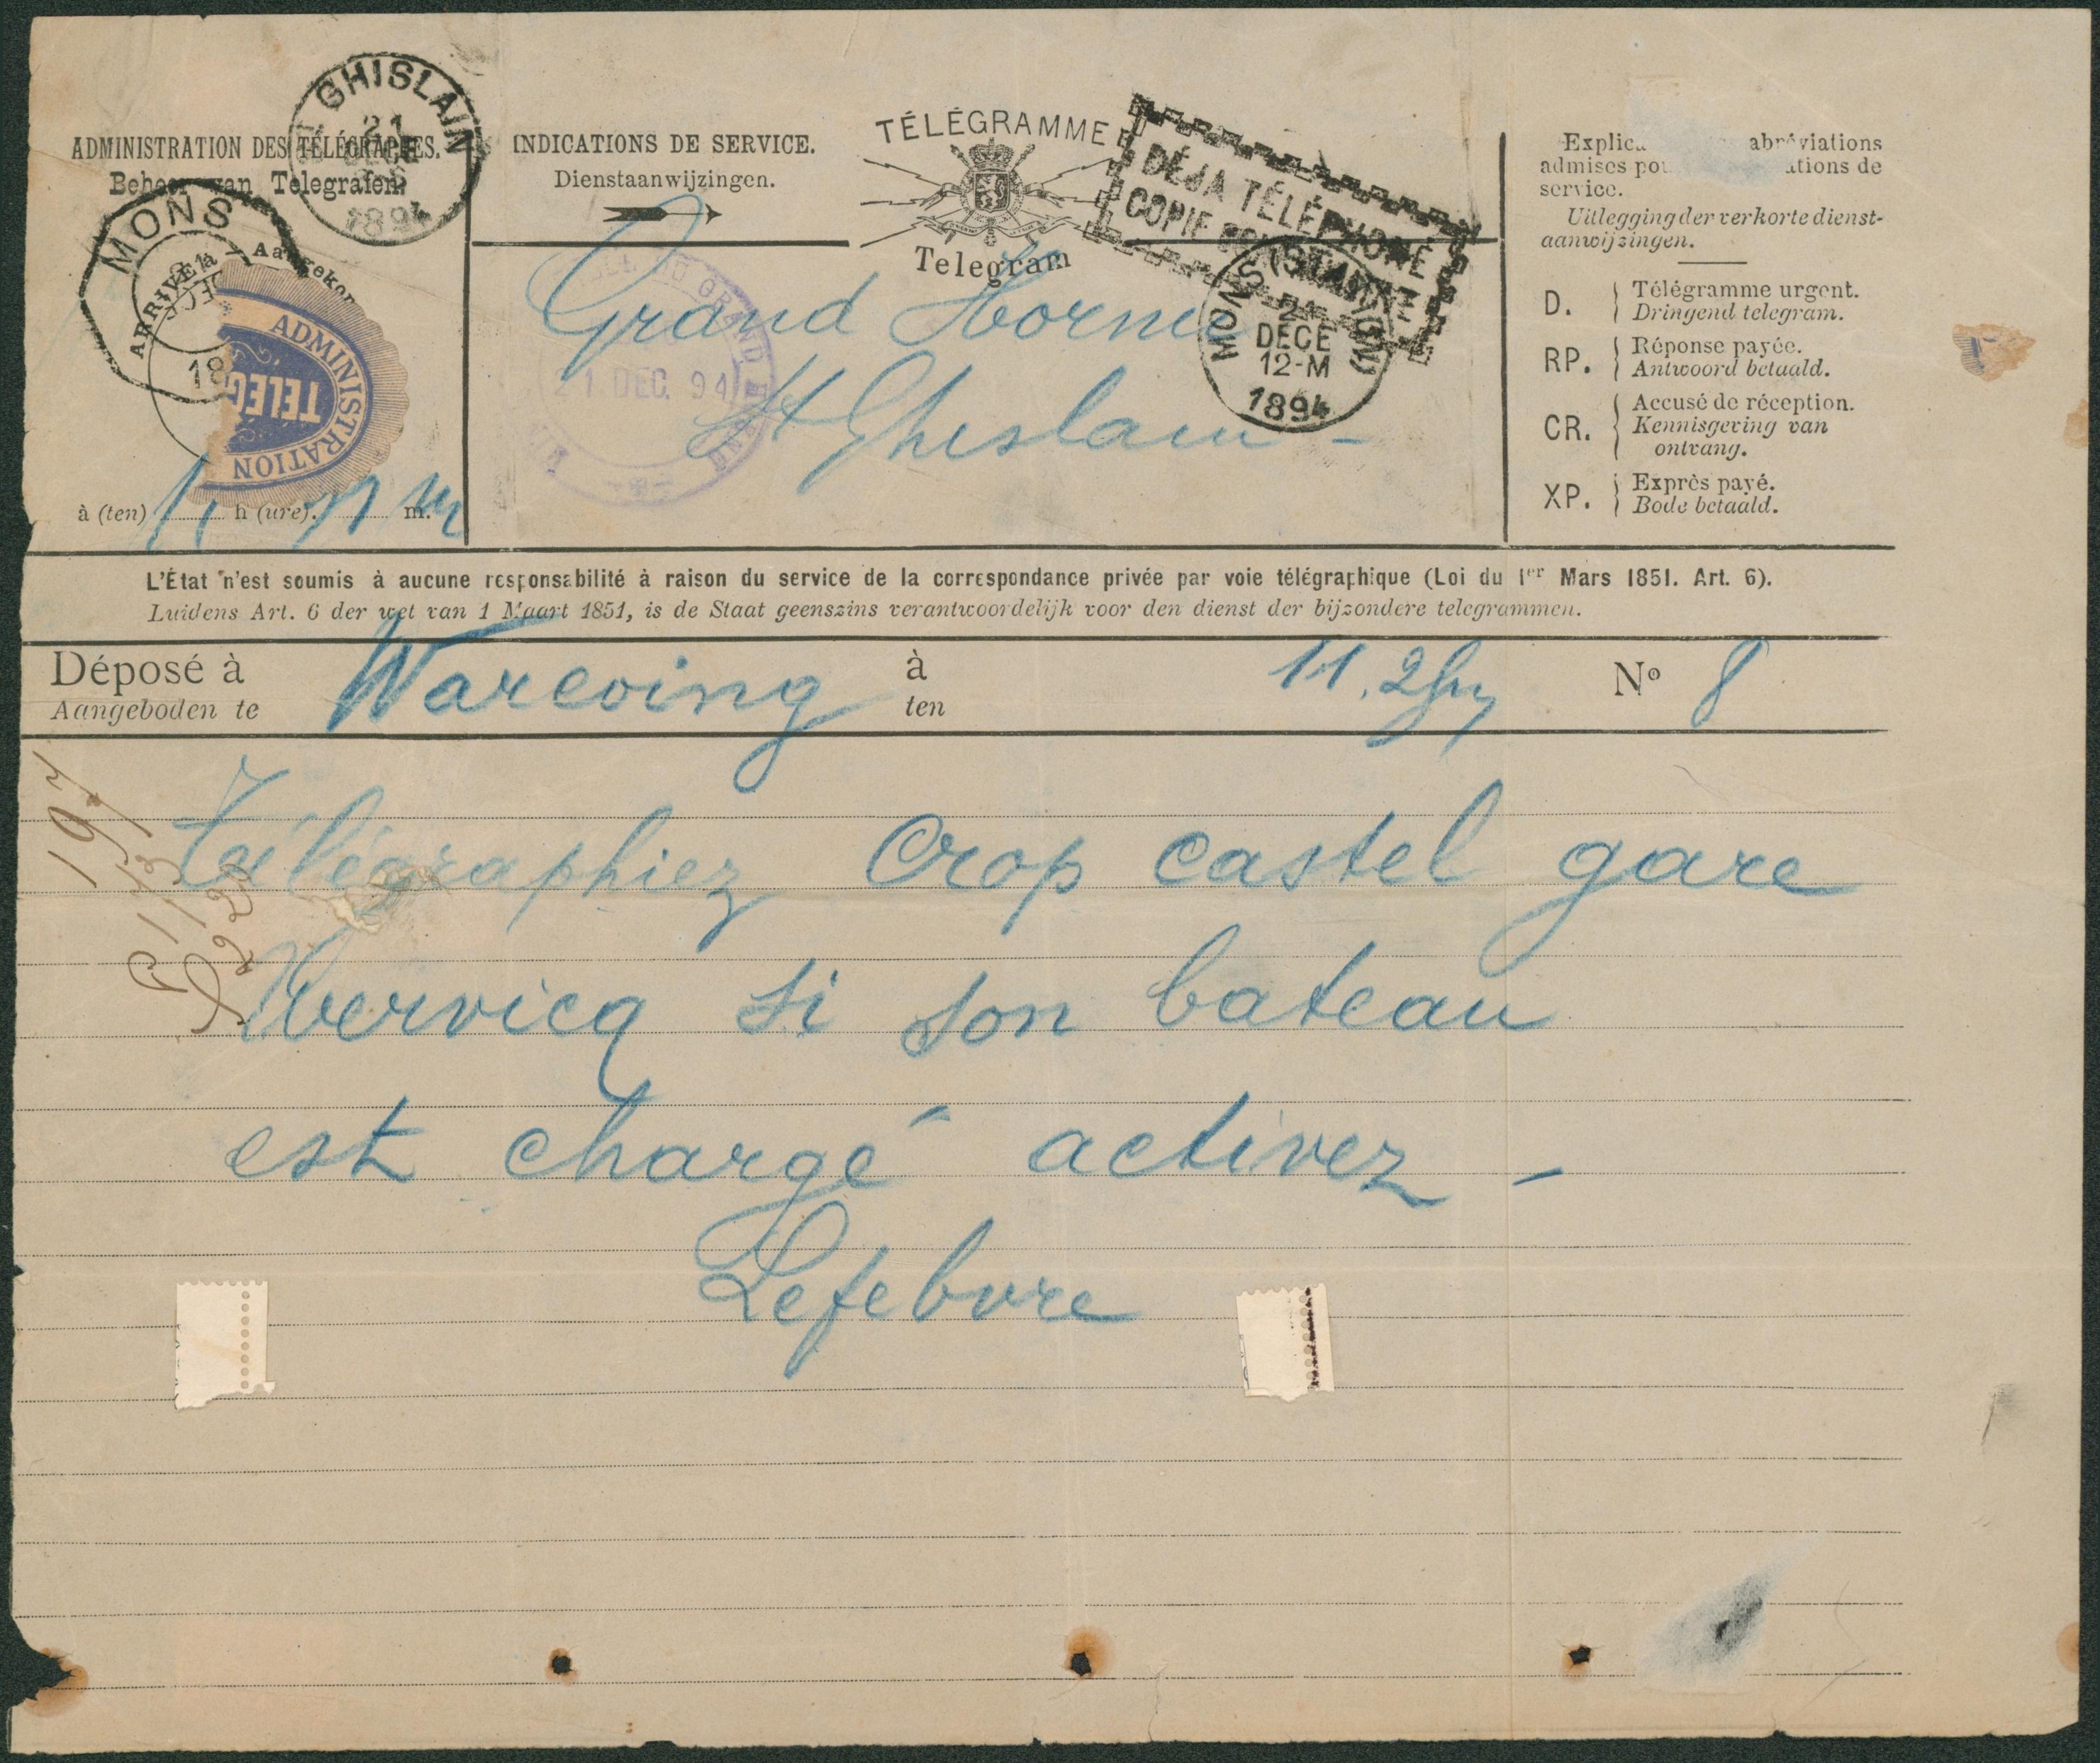 ADMINISTRATION DES TÉLÉGRAPHES.
Beheer van Telegrafen.
GHISLAIN
21
1894
MONS
ARRIVÉ à – Aangekomen
DEC
18
ADMINISTRATION
TELEG
à (ten) 11 h (ure). m.
INDICATIONS DE SERVICE.
Dienstaanwijzingen.
TÉLÉGRAMME
Telegram
DÉJA TÉLÉPHONÉ
COPIE
GRAND
21 DEC. 94
MONS (STATION)
21
DECE
12-M
1894
Grand Hornu
St Ghislain -
Explica abréviations
admises pou ations de
service.
Uitlegging der verkorte dienst-
aanwijzingen.
D. Télégramme urgent.
Dringend telegram.
RP. Réponse payée.
Antwoord betaald.
CR. Accusé de réception.
Kennisgeving van
ontvang.
XP. Exprès payé.
Bode betaald.
L'État n'est soumis à aucune responsabilité à raison du service de la correspondance privée par voie télégraphique (Loi du 1er Mars 1851. Art. 6).
Luidens Art. 6 der wet van 1 Maart 1851, is de Staat geenszins verantwoordelijk voor den dienst der bijzondere telegrammen.
Déposé à Warcoing à 11. No 8
Aangeboden te ten
197
Télégraphiez Crop castel gare
Wervicq si son bateau
est chargé activez -
Lefebvre